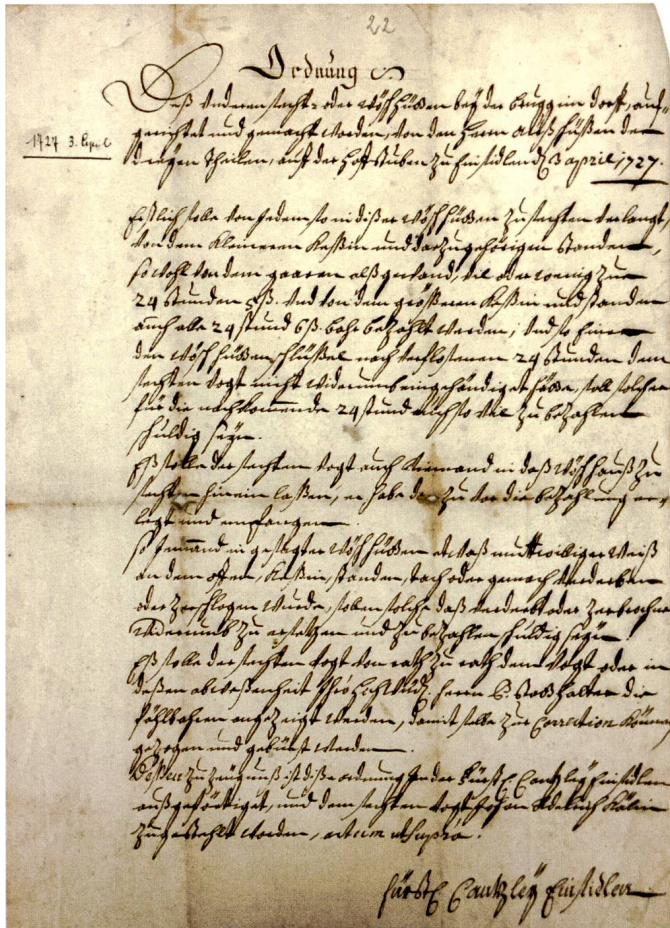 22
Ordnung
Deß Anderen secht- oder Wöschhüßen bey der Brugg im dorff, auf-
gerichtet und gemacht worden, von den Herrn
1727 3. April
dreyen Theilen, auff der Hoffstuben zu Einsidlen d. 3 april 1727.
Erstlich solle von jedem so in diser Wöschhüßen zu sechten verlangt,
von dem Kleineren Keßin und darzu gehörigen Standen,
so wohl von dem garen alß gwand, vil oder wenig zum
24 stunden ß. Und von dem größeren Keßin und standen
auch alle 24 stund 6 ß. bahr bezahlt werden; Und so einer
den Wöschhüßen schlüßel nach verfloßenen 24 stunden dem
sechten Vogt nicht widerumb eingehändiget hätte, soll solcher
für die nachkomende 24 stund auch so vil zu bezahlen
schuldig seyn.
Eß solle der sechten Vogt auch Niemand in daß Wöschhauß zu
sechten hinein laßen, er habe dan zu vor die bezahlung er-
legt und empfangen.
So Jemand in gesagter Wöschhüßen etwaß muthwilliger Weiß
an dem offen, Keßin, standen, tach oder gemach verderben
oder zerschlagen wurde, sollen solche daß verderbt oder zerbrochne
widerumb zu ersetzen und zu bezahlen schuldig seyn.
Eß solle der sechten Vogt von rath zu rath dem Vogt oder in
deßen abweßenheit Herrn Statthalter die
fählbahren angezeigt werden, damit selbe zur Correction können
gezogen und gebüest werden.
Deßen zu zeügnuß ist diße ordnung in der Fürstl. Cantzley Einsidlen
außgefertiget, und dem sechten Vogt Kälin
zugestelt worden, actum ut supra.
Fürstl. Cantzley Einsidlen